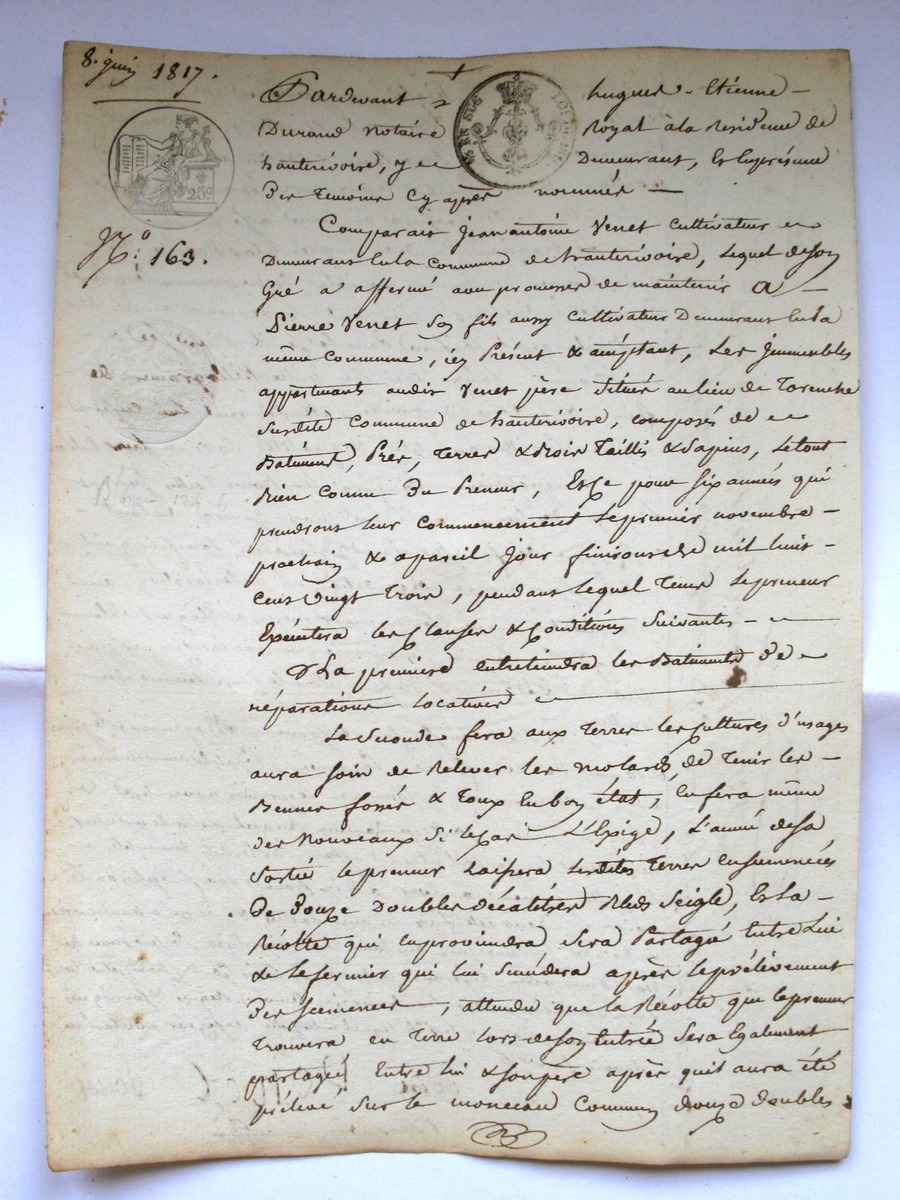 8. juin 1817.
N.º 163.
25c
Pardevant hugues - Etienne -
Durand notaire Royal à la Residence de
hauterivoire, y Demeurant, En la présence
Des Temoins Cy après nommés —
Comparait Jean antoine Venet Cultivateur
Demeurant En la Commune de hauterivoire, Lequel de son
Gré a affermé avec promesse de maintenir a -
Pierre Venet Son fils aussy Cultivateur Demeurant En la
même Commune, icy Présent & acceptant, Les Immeubles
appartenants audit Venet père Situés au lieu de Tarenche
Susdite Commune de hauterivoire, composés de
Batiment, Prés, Terres & Bois Taillis & Sapins, Le tout
Bien Connu Du Preneur, Et ce pour Six années qui
prendront leur Commencement Le premier novembre -
prochain & a pareil Jour finiront mil huit -
Cent Vingt Trois, pendant lequel Tems Le preneur
Exécutera les Clauses & Conditions Suivantes -
La premiere entretiendra les Batiments De
réparations Locatives
La Seconde fera aux Terres les Cultures d'usages
aura soin de Relever les molards, de Tenir les -
fossés & Toux En bon état, En fera même
des Nouveaux Si le cas L'Exige, L'année de sa
Sortie le preneur Laissera Lesdites Terres Ensemencées
De Douze Doubles décalitres Bled Seigle, Et La -
Récolte qui En proviendra Sera Partagée Entre Lui
& Le fermier qui lui Succédera après le prélévement
Des Semences, attendu que la Récolte que le preneur
Trouvera en Terre lors de Son Entrée Sera Egalement
partagée Entre lui & Son père après qu'il aura été
prélevé Sur le monceau Commun douze doubles